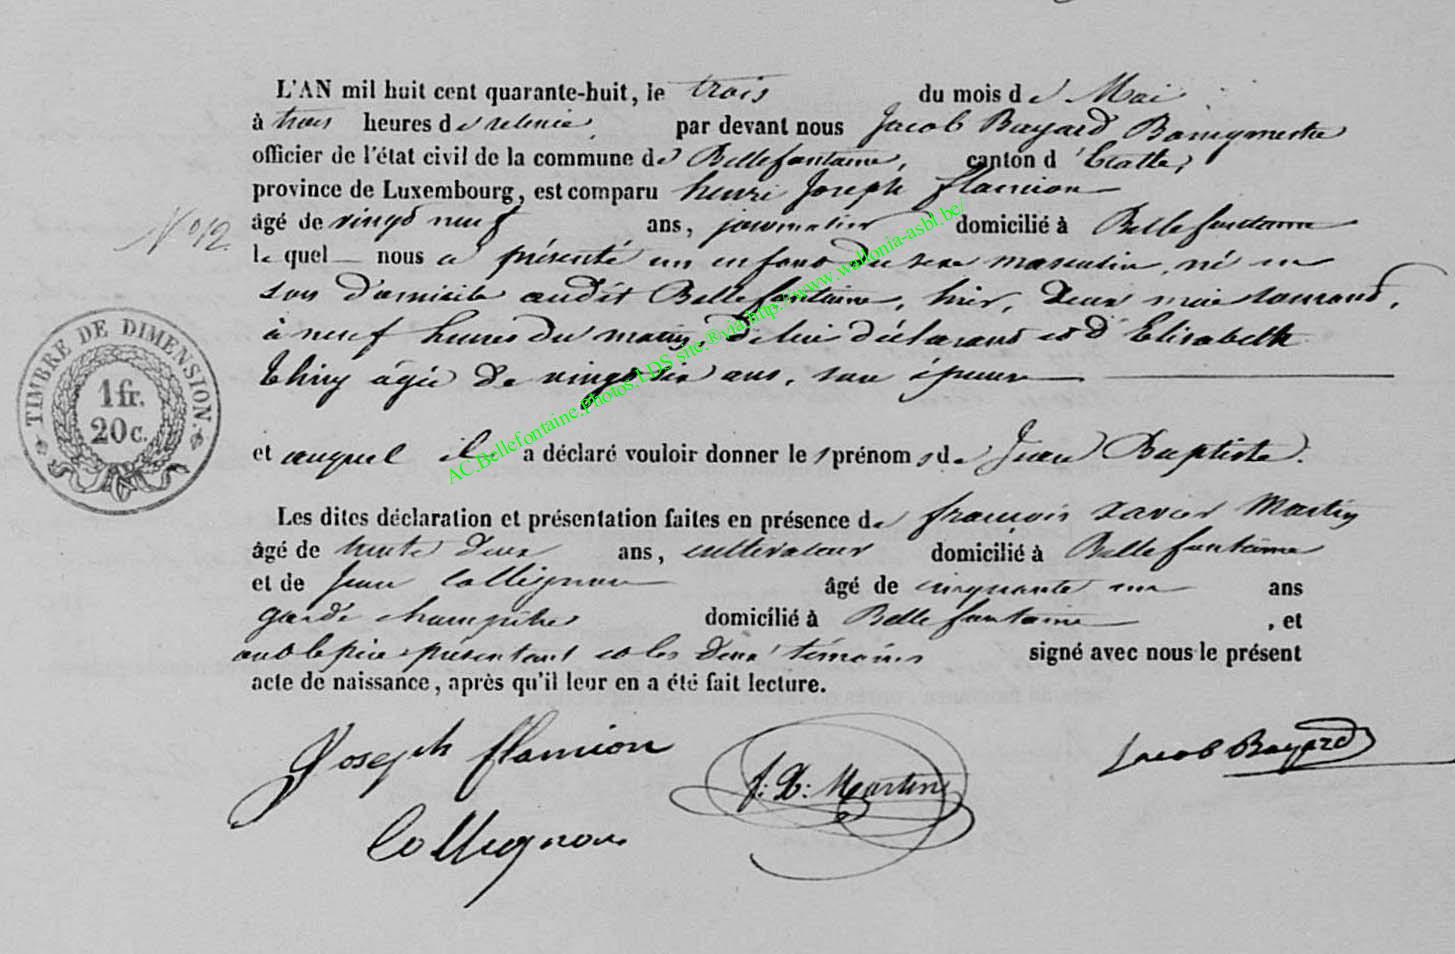 L'AN mil huit cent quarante-huit, le trois du mois de Mai
à trois heures de relevée, par devant nous Jacob Bayard Bourgmestre
officier de l'état civil de la commune de Bellefontaine, canton d'Etalle,
province de Luxembourg, est comparu henri Joseph flamion
N° 12.
âgé de vingt neuf ans, journalier domicilié à Bellefontaine
le quel nous a présenté un enfant du sexe masculin, né en
son domicile audit Bellefontaine, hier, deux mai courant,
à neuf heures du matin, de lui déclarant et d'Elisabeth
Thiry âgée de vingt six ans, son épouse
et auquel il a déclaré vouloir donner les prénoms de Jean Baptiste.
Les dites déclaration et présentation faites en présence de françois xavier Martin
âgé de trente deux ans, cultivateur domicilié à Bellefontaine
et de Jean Collignon âgé de cinquante un ans
garde champêtre domicilié à Bellefontaine, et
ont le père présentant et les deux témoins signé avec nous le présent
acte de naissance, après qu'il leur en a été fait lecture.
Joseph flamion
f: X: Martin
Jacob Bayard
Collignon
TIMBRE DE DIMENSION.
1 fr.
20 c.
AC.Bellefontaine.Photos.LDS site.®via.http://www.wallonia-asbl.be/